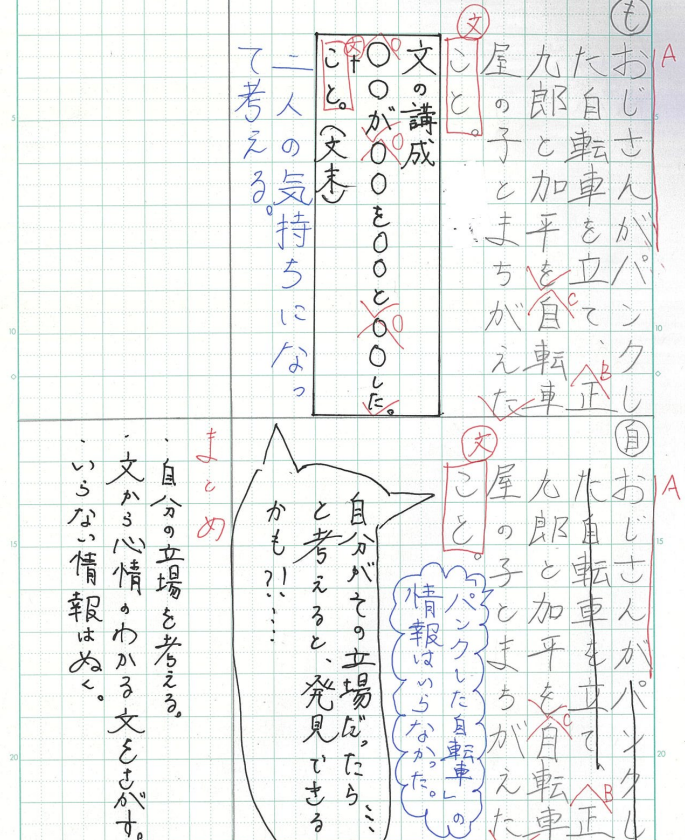 も
A
おじさんがパンクし
た自転車を立て、正
B
九郎と加平を自転車
C
屋の子とまちがえた
文
こと。
文の講成
〇〇が〇〇を〇〇と〇〇した。
文
+
こと。(文末)
二人の気持ちになっ
て考える。
自
A
おじさんがパンクし
た自転車を立て、正
B
九郎と加平を自転車
C
屋の子とまちがえた
文
こと。
パンクした自転車」の
情報はいらなかった。
自分がその立場だったら…
と考えると、発見できる
かも?!……
まとめ
・自分の立場を考える。
・文から心情のわかる文をさがす。
・いらない情報はぬく。
5
10
15
20